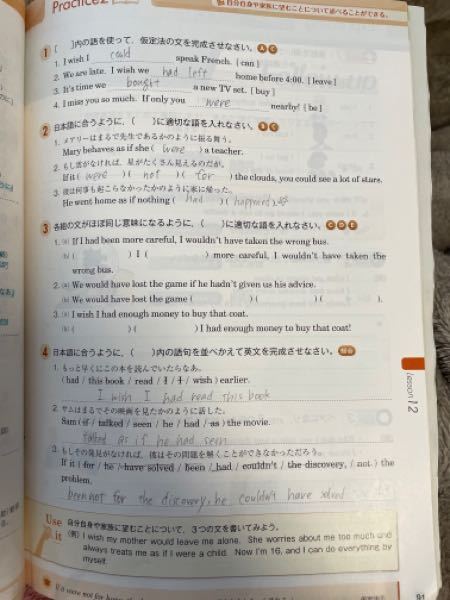 Practice2
自分自身や家族に望むことについて述べることができる。
1 [ ]内の語を使って，仮定法の文を完成させなさい。 A C
1. I wish I could speak French. [ can ]
2. We are late. I wish we had left home before 4:00. [ leave ]
3. It's time we bought a new TV set. [ buy ]
4. I miss you so much. If only you were nearby! [ be ]
2 日本語に合うように，( )に適切な語を入れなさい。 B C
1. メアリーはまるで先生であるかのように振る舞う。
Mary behaves as if she ( were ) a teacher.
2. もし雲がなければ，星がたくさん見えるのだが。
If it ( were ) ( not ) ( for ) the clouds, you could see a lot of stars.
3. 彼は何事も起こらなかったかのように家に帰った。
He went home as if nothing ( had ) ( happened ).
3 各組の文がほぼ同じ意味になるように，( )に適切な語を入れなさい。 C D E
1. (a) If I had been more careful, I wouldn't have taken the wrong bus.
(b) ( ) I ( ) more careful, I wouldn't have taken the
wrong bus.
2. (a) We would have lost the game if he hadn't given us his advice.
(b) We would have lost the game ( ) ( ) ( ) ( ).
3. (a) I wish I had enough money to buy that coat.
(b) ( ) ( ) I had enough money to buy that coat!
4 日本語に合うように，( )内の語句を並べかえて英文を完成させなさい。
1. もっと早くにこの本を読んでいたらなあ。
( had / this book / read / I / I / wish ) earlier.
I wish I had read this book
2. サムはまるでその映画を見たかのように話した。
Sam ( if / talked / seen / he / had / as ) the movie.
talked as if he had seen
3. もしその発見がなければ，彼はその問題を解くことができなかっただろう。
If it ( for / he / have solved / been / had / couldn't / the discovery, / not ) the
problem.
been not for the discovery, he couldn't have solved
Use it
自分自身や家族に望むことについて，3つの文を書いてみよう。
(例) I wish my mother would leave me alone. She worries about me too much and
always treats me as if I were a child. Now I'm 16, and I can do everything by
myself.
lesson 12
91